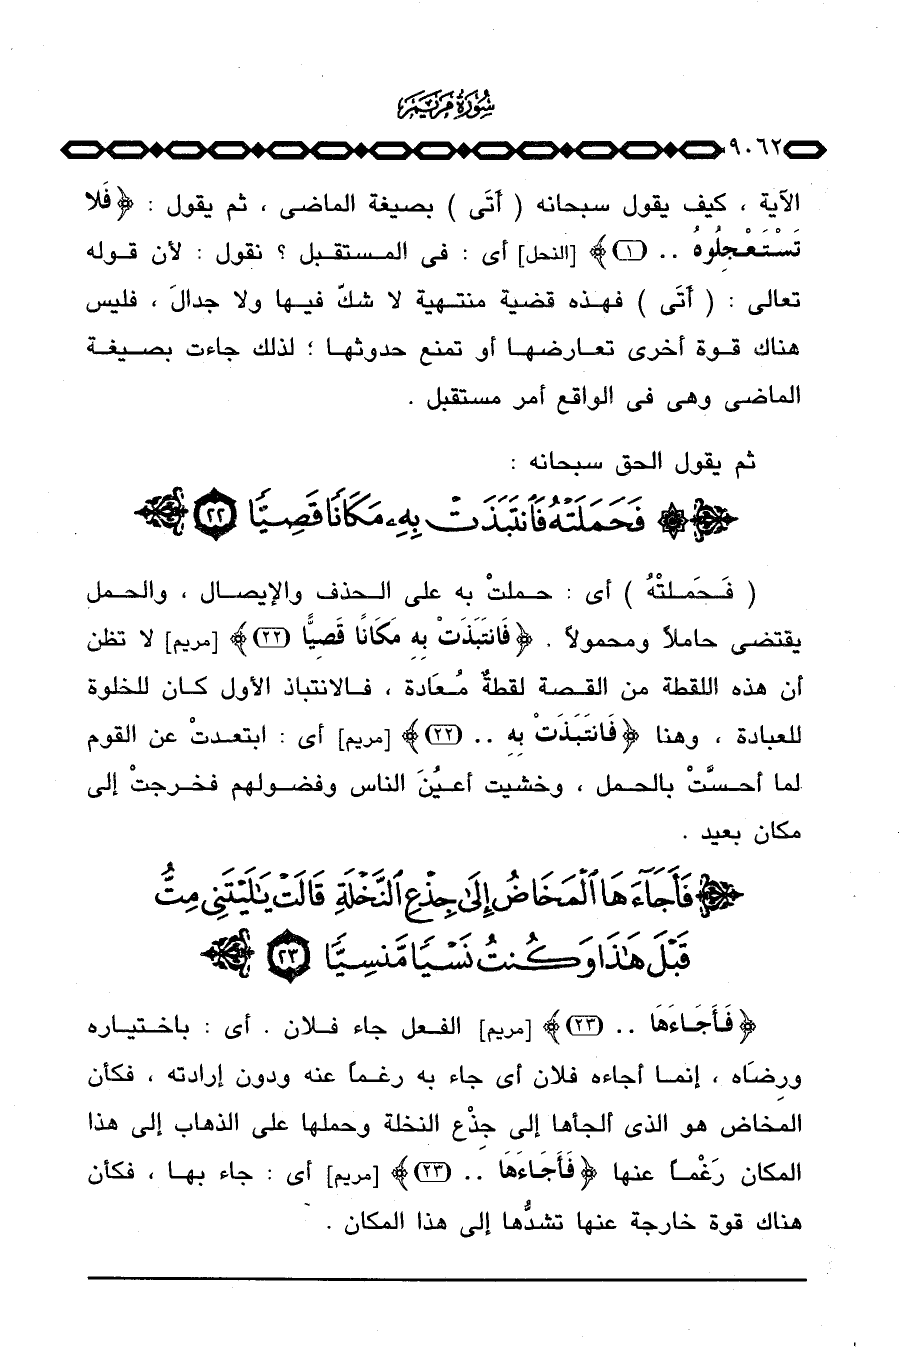 سورة مريم
٩٠٦٢
الآية ، كيف يقول سبحانه ( أَتَى ) بصيغة الماضى ، ثم يقول : ﴿ فَلا
تَسْتَعْجِلُوهُ .. (١) ﴾ [النحل] أى : فى المستقبل ؟ نقول : لأن قوله
تعالى : ( أَتَى ) فهذه قضية منتهية لا شكَّ فيها ولا جدالَ ، فليس
هناك قوة أخرى تعارضها أو تمنع حدوثها ؛ لذلك جاءت بصيغة
الماضى وهى فى الواقع أمر مستقبل .
ثم يقول الحق سبحانه :
۞ فَحَمَلَتْهُ فَٱنتَبَذَتْ بِهِۦ مَكَانًا قَصِيًّا (٢٢)
( فَحَمَلتْهُ ) أى : حملتْ به على الحذف والإيصال ، والحمل
يقتضى حاملاً ومحمولاً . ﴿ فَانتَبَذَتْ بِهِ مَكَانًا قَصِيًّا (٢٢) ﴾ [مريم] لا تظن
أن هذه اللقطة من القصة لقطةٌ مُعَادة ، فالانتباذ الأول كان للخلوة
للعبادة ، وهنا ﴿ فَانتَبَذَتْ بِهِ .. (٢٢) ﴾ [مريم] أى : ابتعدتْ عن القوم
لما أحسَّتْ بالحمل ، وخشيت أعيُنَ الناس وفضولهم فخرجتْ إلى
مكان بعيد .
فَأَجَآءَهَا ٱلْمَخَاضُ إِلَىٰ جِذْعِ ٱلنَّخْلَةِ قَالَتْ يَٰلَيْتَنِى مِتُّ
قَبْلَ هَٰذَا وَكُنتُ نَسْيًا مَّنسِيًّا (٢٣)
﴿ فَأَجَاءَهَا .. (٢٣) ﴾ [مريم] الفعل جاء فلان . أى : باختياره
ورِضَاه ، إنما أجاءه فلان أى جاء به رغماً عنه ودون إرادته ، فكأن
المخاض هو الذى ألجأها إلى جِذْع النخلة وحملها على الذهاب إلى هذا
المكان رَغْماً عنها ﴿ فَأَجَاءَهَا .. (٢٣) ﴾ [مريم] أى : جاء بها ، فكأن
هناك قوة خارجة عنها تشدُّها إلى هذا المكان .